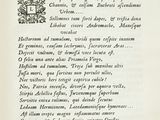 Chaonio, & celsam Buthroti ascendimus
Urbem.
Sollemnes tum forte dapes, & tristia dona
Libabat cineri Andromache, Manesque
vocabat
Hectoreum ad tumulum, viridi quem cespite inanem
Et geminas, causam lacrymis, sacraverat Aras.
Dejecit vultum, & demissa voce locuta est:
O felix una ante alias Priameia Virgo,
Hostilem ad tumulum Trojæ sub mœnibus altis
Jussa mori, quæ sortitus non pertulit ullos,
Nec victoris heri tetigit captiva cubile!
Nos, Patria incensa, diversa per æquora vectæ,
Stirpis Achilleæ fastus, Juvenemque superbum,
Servitio enixæ tulimus: qui deinde secutus